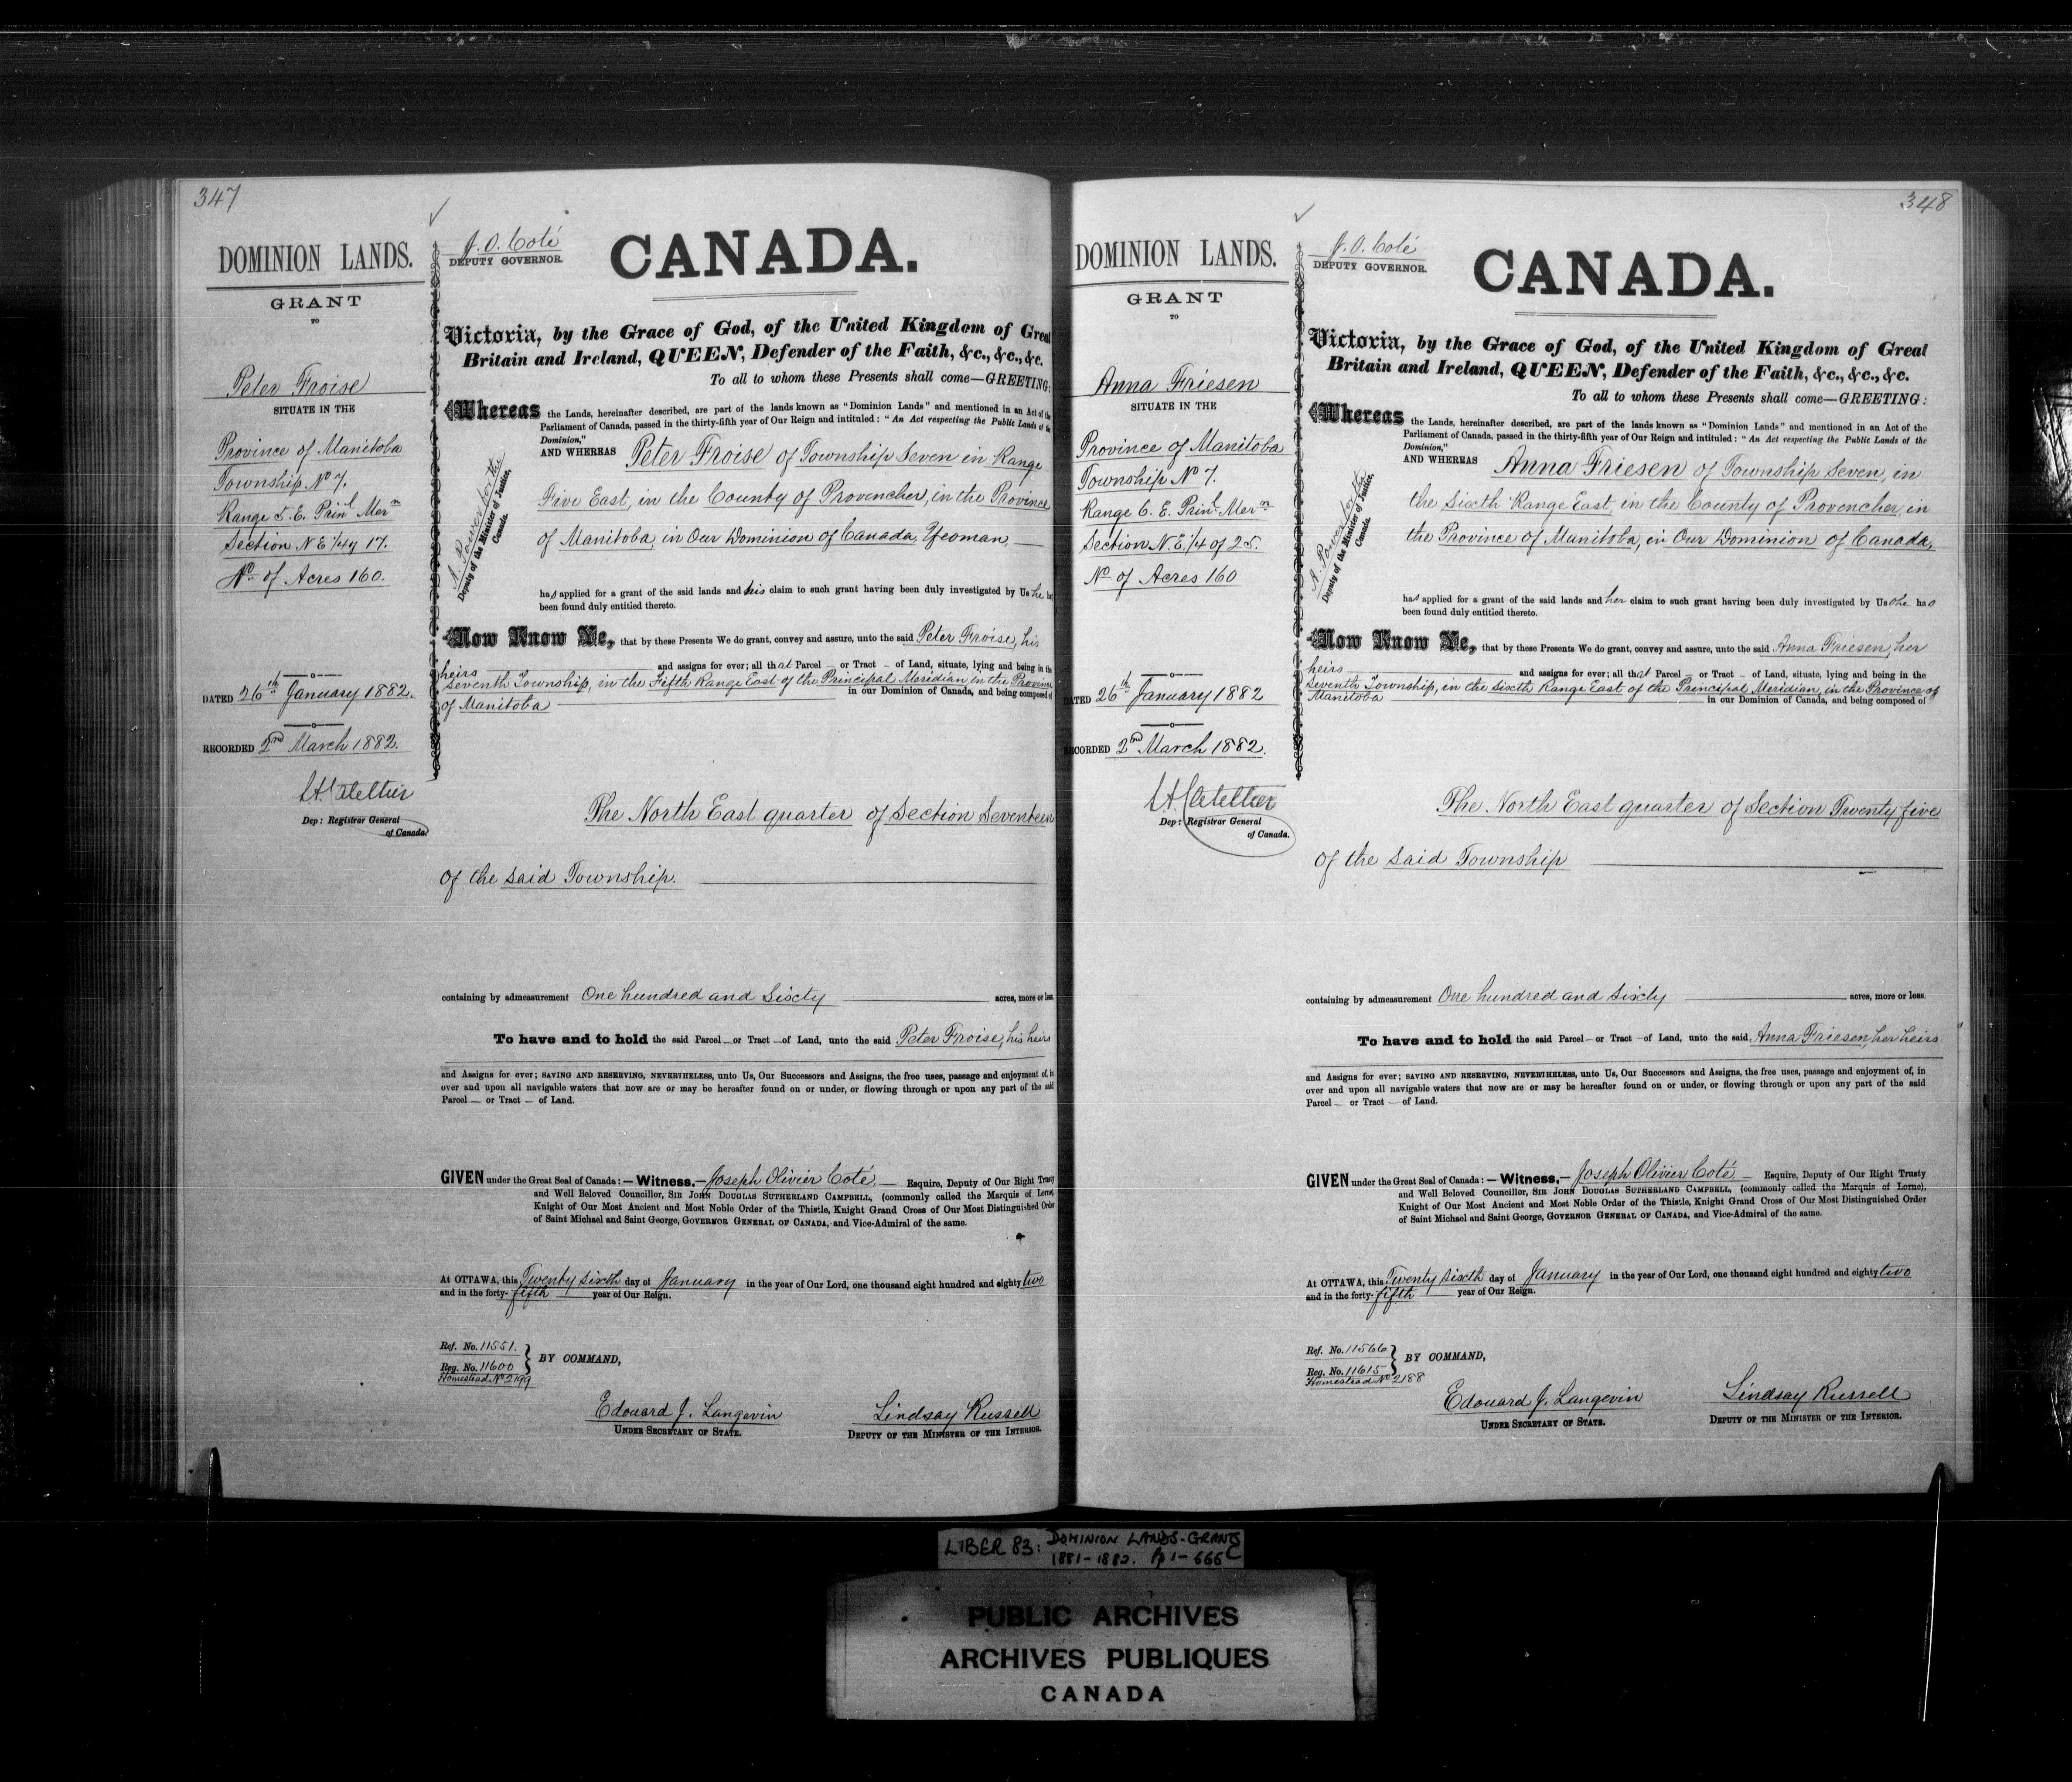 347
DOMINION LANDS.
GRANT
TO
Peter Froise
SITUATE IN THE
Province of Manitoba
Township No 7.
Range 5. E. Prinl Mern
Section N E 1/4 of 17.
No of Acres 160.
DATED 26th January 1882.
RECORDED 2nd March 1882.
Dep: Registrar General
of Canada.
J. O. Coté
DEPUTY GOVERNOR.
CANADA.
Victoria, by the Grace of God, of the United Kingdom of Great
Britain and Ireland, QUEEN, Defender of the Faith, &c., &c., &c.
To all to whom these Presents shall come—GREETING:
Whereas the Lands, hereinafter described, are part of the lands known as "Dominion Lands" and mentioned in an Act of the
Parliament of Canada, passed in the thirty-fifth year of Our Reign and intituled: "An Act respecting the Public Lands of the
Dominion,"
AND WHEREAS Peter Froise of Township Seven in Range
Five East, in the County of Provencher, in the Province
of Manitoba, in Our Dominion of Canada, Yeoman,
A. Power for the
Deputy of the Minister of Justice,
Canada.
has applied for a grant of the said lands and his claim to such grant having been duly investigated by Us he has
been found duly entitled thereto.
Now Know Ye, that by these Presents We do grant, convey and assure, unto the said Peter Froise, his
heirs and assigns for ever; all that Parcel — or Tract — of Land, situate, lying and being in the
Seventh Township, in the Fifth Range East of the Principal Meridian in the Province
of Manitoba in our Dominion of Canada, and being composed of
The North East quarter of Section Seventeen
of the said Township.
containing by admeasurement One hundred and Sixty acres, more or less.
To have and to hold the said Parcel — or Tract — of Land, unto the said Peter Froise, his heirs
and Assigns for ever; SAVING AND RESERVING, NEVERTHELESS, unto Us, Our Successors and Assigns, the free uses, passage and enjoyment of, in
over and upon all navigable waters that now are or may be hereafter found on or under, or flowing through or upon any part of the said
Parcel — or Tract — of Land.
GIVEN under the Great Seal of Canada:—Witness,—Joseph Olivier Coté — Esquire, Deputy of Our Right Trusty
and Well Beloved Councillor, SIR JOHN DOUGLAS SUTHERLAND CAMPBELL, (commonly called the Marquis of Lorne),
Knight of Our Most Ancient and Most Noble Order of the Thistle, Knight Grand Cross of Our Most Distinguished Order
of Saint Michael and Saint George, GOVERNOR GENERAL OF CANADA, and Vice-Admiral of the same.
At OTTAWA, this Twenty sixth day of January in the year of Our Lord, one thousand eight hundred and eighty two
and in the forty-fifth year of Our Reign.
Ref. No. 11551.
Reg. No. 11600
Homestead No 2199
BY COMMAND,
Edouard J. Langevin
UNDER SECRETARY OF STATE.
Lindsay Russell
DEPUTY OF THE MINISTER OF THE INTERIOR.
348
DOMINION LANDS.
GRANT
TO
Anna Friesen
SITUATE IN THE
Province of Manitoba
Township No 7.
Range 6. E. Prinl Mern
Section N. E. 1/4 of 25.
No of Acres 160
DATED 26th January 1882
RECORDED 2nd March 1882.
Dep: Registrar General
of Canada.
J. O. Coté
DEPUTY GOVERNOR.
CANADA.
Victoria, by the Grace of God, of the United Kingdom of Great
Britain and Ireland, QUEEN, Defender of the Faith, &c., &c., &c.
To all to whom these Presents shall come—GREETING:
Whereas the Lands, hereinafter described, are part of the lands known as "Dominion Lands" and mentioned in an Act of the
Parliament of Canada, passed in the thirty-fifth year of Our Reign and intituled: "An Act respecting the Public Lands of the
Dominion,"
AND WHEREAS Anna Friesen of Township Seven, in
the Sixth Range East, in the County of Provencher, in
the Province of Manitoba, in Our Dominion of Canada,
A. Power for the
Deputy of the Minister of Justice,
Canada.
has applied for a grant of the said lands and her claim to such grant having been duly investigated by Us she has
been found duly entitled thereto.
Now Know Ye, that by these Presents We do grant, convey and assure, unto the said Anna Friesen, her
heirs and assigns for ever; all that Parcel — or Tract — of Land, situate, lying and being in the
Seventh Township, in the sixth Range East of the Principal Meridian, in the Province of
Manitoba in our Dominion of Canada, and being composed of
The North East quarter of Section Twenty five
of the said Township
containing by admeasurement One hundred and sixty acres, more or less.
To have and to hold the said Parcel — or Tract — of Land, unto the said Anna Friesen, her heirs
and Assigns for ever; SAVING AND RESERVING, NEVERTHELESS, unto Us, Our Successors and Assigns, the free uses, passage and enjoyment of, in
over and upon all navigable waters that now are or may be hereafter found on or under, or flowing through or upon any part of the said
Parcel — or Tract — of Land.
GIVEN under the Great Seal of Canada:—Witness,—Joseph Olivier Coté — Esquire, Deputy of Our Right Trusty
and Well Beloved Councillor, SIR JOHN DOUGLAS SUTHERLAND CAMPBELL, (commonly called the Marquis of Lorne),
Knight of Our Most Ancient and Most Noble Order of the Thistle, Knight Grand Cross of Our Most Distinguished Order
of Saint Michael and Saint George, GOVERNOR GENERAL OF CANADA, and Vice-Admiral of the same.
At OTTAWA, this Twenty sixth day of January in the year of Our Lord, one thousand eight hundred and eighty two
and in the forty-fifth year of Our Reign.
Ref. No. 11566
Reg. No. 11615
Homestead No 2188
BY COMMAND,
Edouard J. Langevin
UNDER SECRETARY OF STATE.
Lindsay Russell
DEPUTY OF THE MINISTER OF THE INTERIOR.
LIBER 83: DOMINION LANDS-GRANTS
1881-1882. Pp 1-666
PUBLIC ARCHIVES
ARCHIVES PUBLIQUES
CANADA